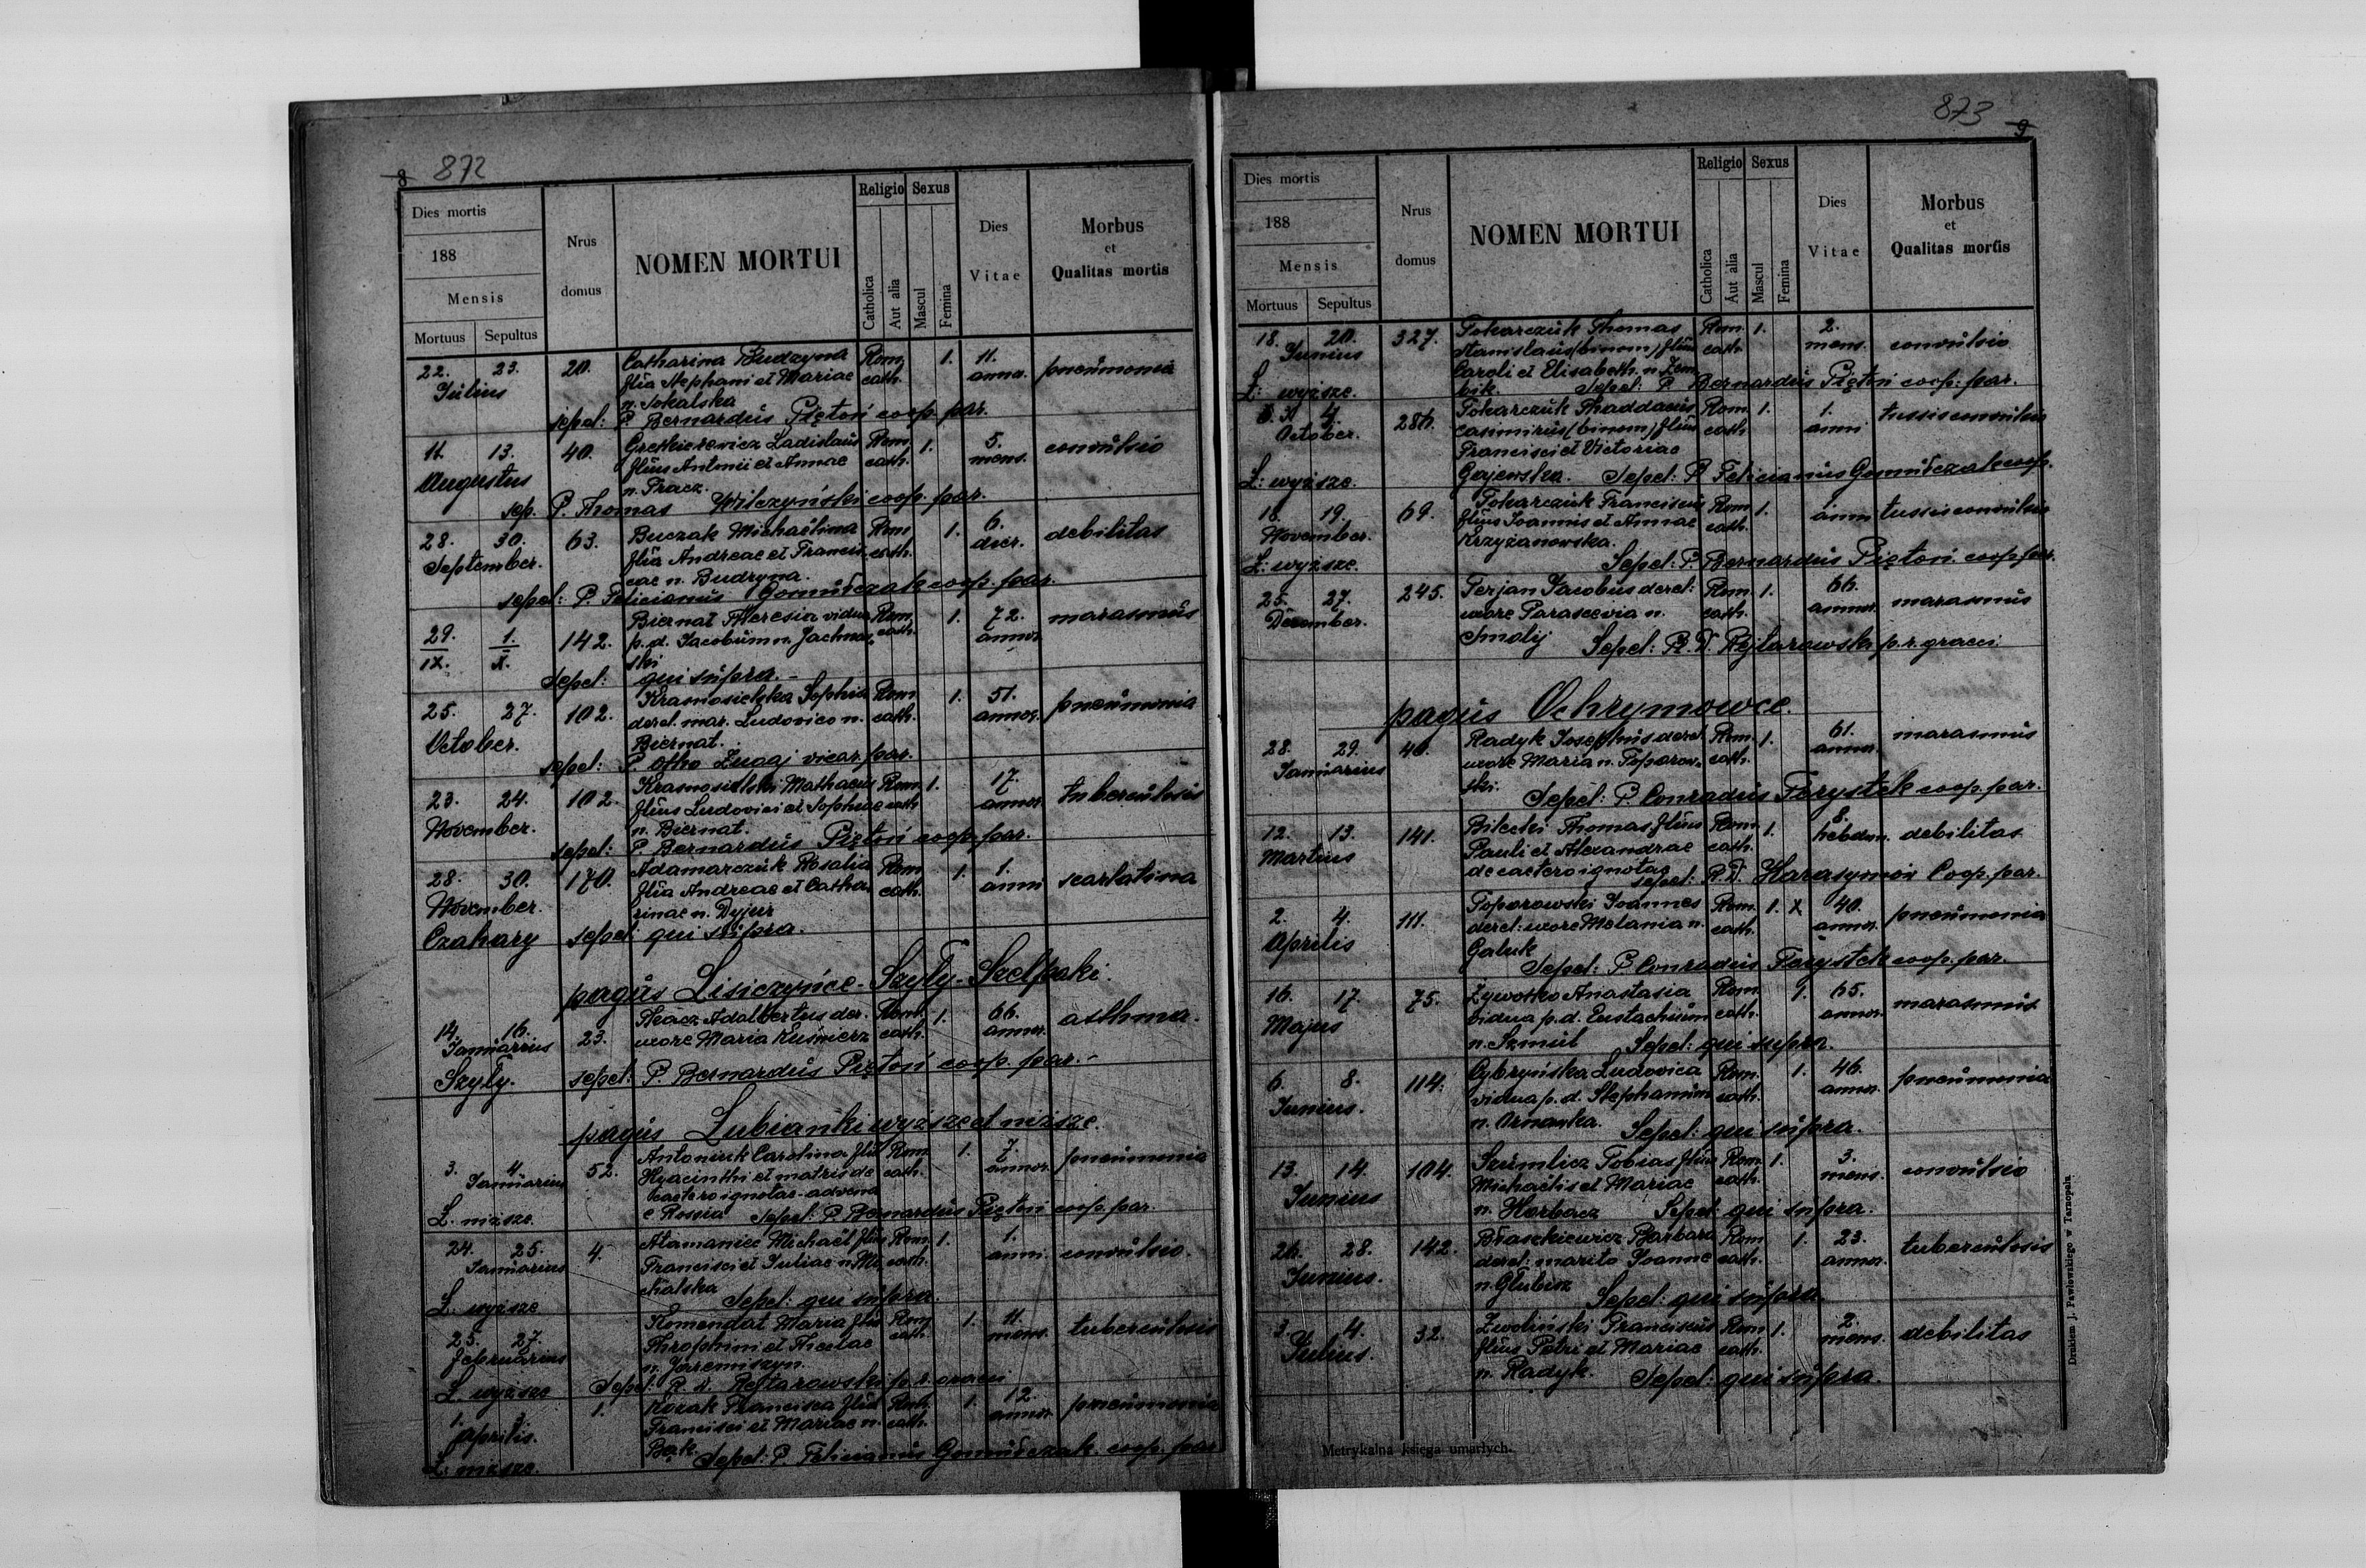 8 872
Dies mortis
188
Mensis
Mortuus Sepultus
Nrus domus
NOMEN MORTUI
Religio
Catholica
Aut alia
Sexus
Mascul
Femina
Dies Vitae
Morbus et Qualitas mortis
22. 23. 20. Catharina Budzyna Rom. 1. 11. pneumonia
Julius filia Stephani et Mariae cath. annor.
n. Sokalska
sepel: P. Bernardus Piętoń coop. par.
11. 13. 40. Ladislaus Rom. 1. 5. convulsio
Augustus filius Antonii et Annae cath. mens.
n. Pracz.
sep. P. Thomas Wilczyński coop. par.
28. 30. 63. Buczak Michaëlina Rom. 1. 6. debilitas
September. filia Andreae et Francis cath. dier.
cae n. Budzyna.
sepel: P. Felicianus Gomułczak coop. par.
29. 1. 142. Biernat Theresia vidua Rom. 1. 72. marasmus
IX. X. p. d. Jacobum n. Jachnow cath. annor.
ski
Sepel: qui supra.-
25. 27. 102. Krasnosielska Sophia Rom. 1. 51. pneumonia
October. derel. mar. Ludovico n. cath. annor.
Biernat.
sepel: P. Otho Zugaj vicar. par.
23. 24. 102. Krasnosielski Mathaeus Rom. 1. 17. tuberculosis
November. filius Ludovici et Sophiae cath. annor.
n. Biernat.
sepel: P. Bernardus Piętoń coop. par.
28. 30. 170. Adamarczuk Rosalia Rom. 1. 1. scarlatina
November. filia Andreae et Catha cath. anni
rinae n. Dyjur
Czahary sepel: qui supra.
pagus Lisiczyńce-Szyły-Szelpaki.
14. 16. 23. Tkacz Adalbertus der. Rom. 1. 66. asthma.
Januarius uxore Maria Kuśnierz cath. annor.
Szyły. sepel: P. Bernardus Piętoń coop. par.-
pagus Lubianki wyższe et niższe.
3. 4. 52. Antoniuk Carolina filia Rom. 1. 7. pneumonia
Januarius Hyacinthi et matris de cath. annor.
caetero ignotae-advena
L. niższe. e Rossia Sepel: P. Bernardus Piętoń coop. par.
24. 25. 4. Atamaniec Michaël filius Rom. 1. 1. convulsio.
Januarius Francisci et Juliae n. Mi cath. anni.
chalska
L. wyższe Sepel: qui supra.
25. 27. Komendat Maria filia Rom. 1. 11. tuberculosis
Februarius Throphimi et Theclae cath. mens.
n. Jaremiszyn.
L. wyższe Sepel: R. D. Rejtarowski p. r. graeci
1. 3. 1. Kozak Francisca filia Rom. 1. 12. pneumonia
Aprilis. Francisci et Mariae n. cath. annor.
Bąk.
L. niższe. Sepel: P. Felicianus Gomułczak. coop. par.
873 9
Dies mortis
188
Mensis
Mortuus Sepultus
Nrus domus
NOMEN MORTUI
Religio
Catholica
Aut alia
Sexus
Mascul
Femina
Dies Vitae
Morbus et Qualitas mortis
18. 20. 327. Tokarczuk Thomas Rom. 1. 2. convulsio
Junius Stanislaus (binom) filius cath. mens.
Caroli et Elisabeth. n. Zem
L: wyższe. bik. Sepel: P. Bernardus Piętoń coop: par.
4. Tokarczuk Thaddaeus Rom. 1. 1. tussis convulsiva
October. Casimirus (binom) filius cath. anni
Francisci et Victoriae
L: wyższe. Gajewska. Sepel: P. Felicianus Gomułczak coop.
18. 19. 69. Tokarczuk Franciscus Rom. 1. anni tussis convulsiva
November. filius Joannis et Annae cath.
Krzyżanowska.
L: wyższe. Sepel: P. Bernardus Piętoń. coop par.
25. 27. 245. Terjan Jacobus derel: Rom. 1. 66. marasmus
December. uxore Parascevia n. cath. annor.
Smolij Sepel: R. D. Rejtarowski p. r. graeci.
pagus Ochrymowce.
28. 29. 40. Radyk Josephus derel. Rom. 1. 61. marasmus
Januarius uxore Maria n. Toporow cath. annor.
ski. Sepel: P. Conradus Forystek coop. par.
12. 13. 141. Bilecki Thomas filius Rom. 1. 8. debilitas
Martius Pauli et Alexandrae cath. hebdom.
de caetero ignotae
sepel: R. D. Harasymów Coop. par.
2. 4. 111. Toporowski Joannes Rom. 1. X 40. pneumonia
Aprilis derel: uxore Melania n. cath. annor.
Galuk
Sepel: P. Conradus Forystek coop. par.
16. 17. 75. Żywotko Anastasia Rom. 1. 65. marasmus
Majus vidua p. d. Eustachium cath. annor.
n. Szmul Sepel: qui supra.
6. 8. 114. Cybryńska Ludovica Rom. 1. 46. pneumonia
Junius. vidua p. d. Stephanum cath. annor.
n. Ornawka. Sepel: qui supra.
13. 14. 104. Szumlicz Tobias filius Rom. 1. 3. convulsio
Junius Michaëlis et Mariae cath. mens.
n. Horbacz Sepel: qui supra.
26. 28. 142. Błaszkiewicz Barbara Rom. 1. 23. tuberculosis
Junius. derel: marito Joanne cath. annor.
n. Głubisz Sepel: qui supra.
3. 4. 32. Zwoliński Franciscus Rom. 1. 2. debilitas
Julius. filius Petri et Mariae cath. mens.
n. Radyk. Sepel: qui supra.
Metrykalna księga umarłych.
Drukiem J. Pawłowskiego w Tarnopolu